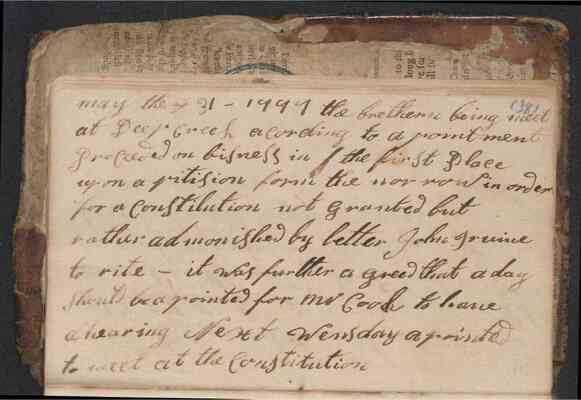 may the 31 - 1799 the brethern being meet
(38)
at Deep Creek acording to a pointment
proceed on bisness in the first place
upon a pitision form the nor row in order
for a Constitution not granted but
rather admonished by letter John Irvine
to rite - it was further a greed that a day
should be apointed for Mr Cook to have
a hearing Next Wensday apointed
to meet at the Constitution